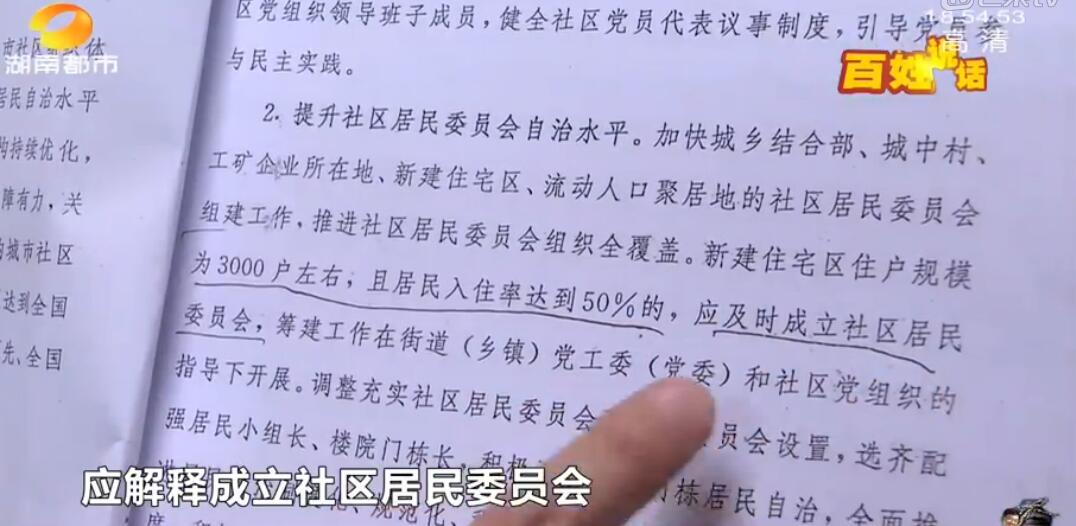 区党组织领导班子成员，健全社区党员代表议事制度，引导党员参
与民主实践。
2. 提升社区居民委员会自治水平。加快城乡结合部、城中村、
工矿企业所在地、新建住宅区、流动人口聚居地的社区居民委员会
组建工作，推进社区居民委员会组织全覆盖。新建住宅区住户规模
为3000户左右，且居民入住率达到50%的，应及时成立社区居民
委员会，筹建工作在街道（乡镇）党工委（党委）和社区党组织的
指导下开展。调整充实社区居民委员会
员会设置，选齐配
强居民小组长、楼院门栋长，积极
栋居民自治，全面推
居民自治水平
构持续优化，
障有力，关
的城市社区
达到全国
先、全国
湖南都市
18:54:53
高清
百姓说话
应解释成立社区居民委员会